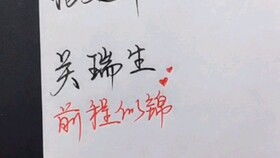 吴瑞生
前程似锦